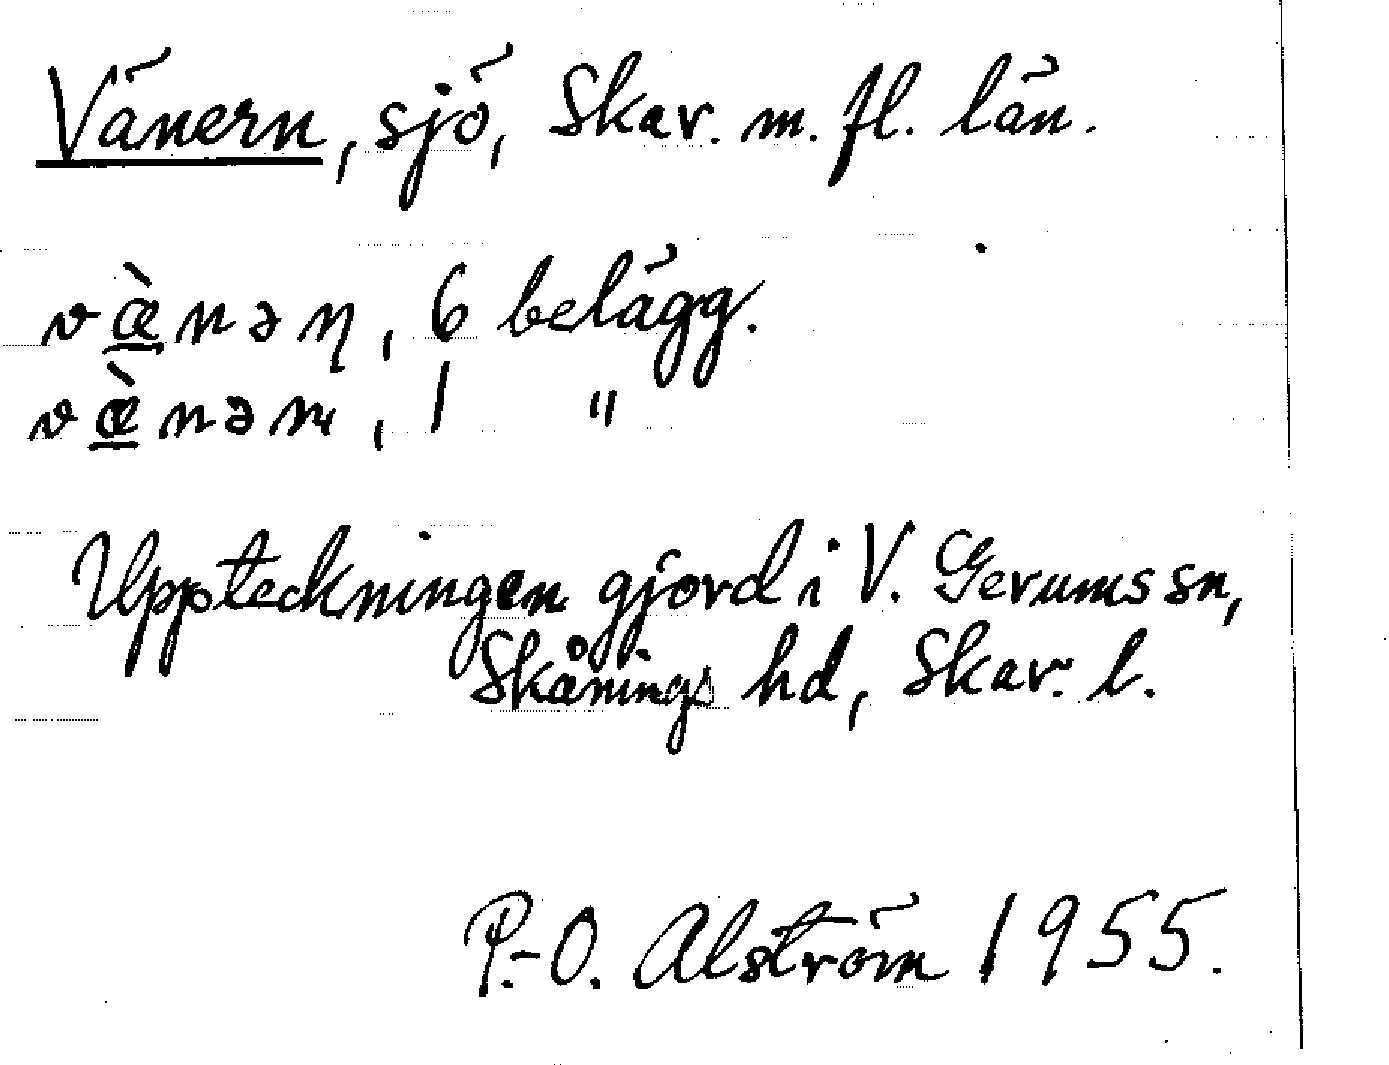 Vänern, sjö, Skar. m. fl. län.
væ̱̀nəɳ, 6 belägg.
væ̱̀nən, 1 "
Uppteckningen gjord i V. Gerums sn,
Skånings hd, Skar. l.
P.-O. Alström 1955.